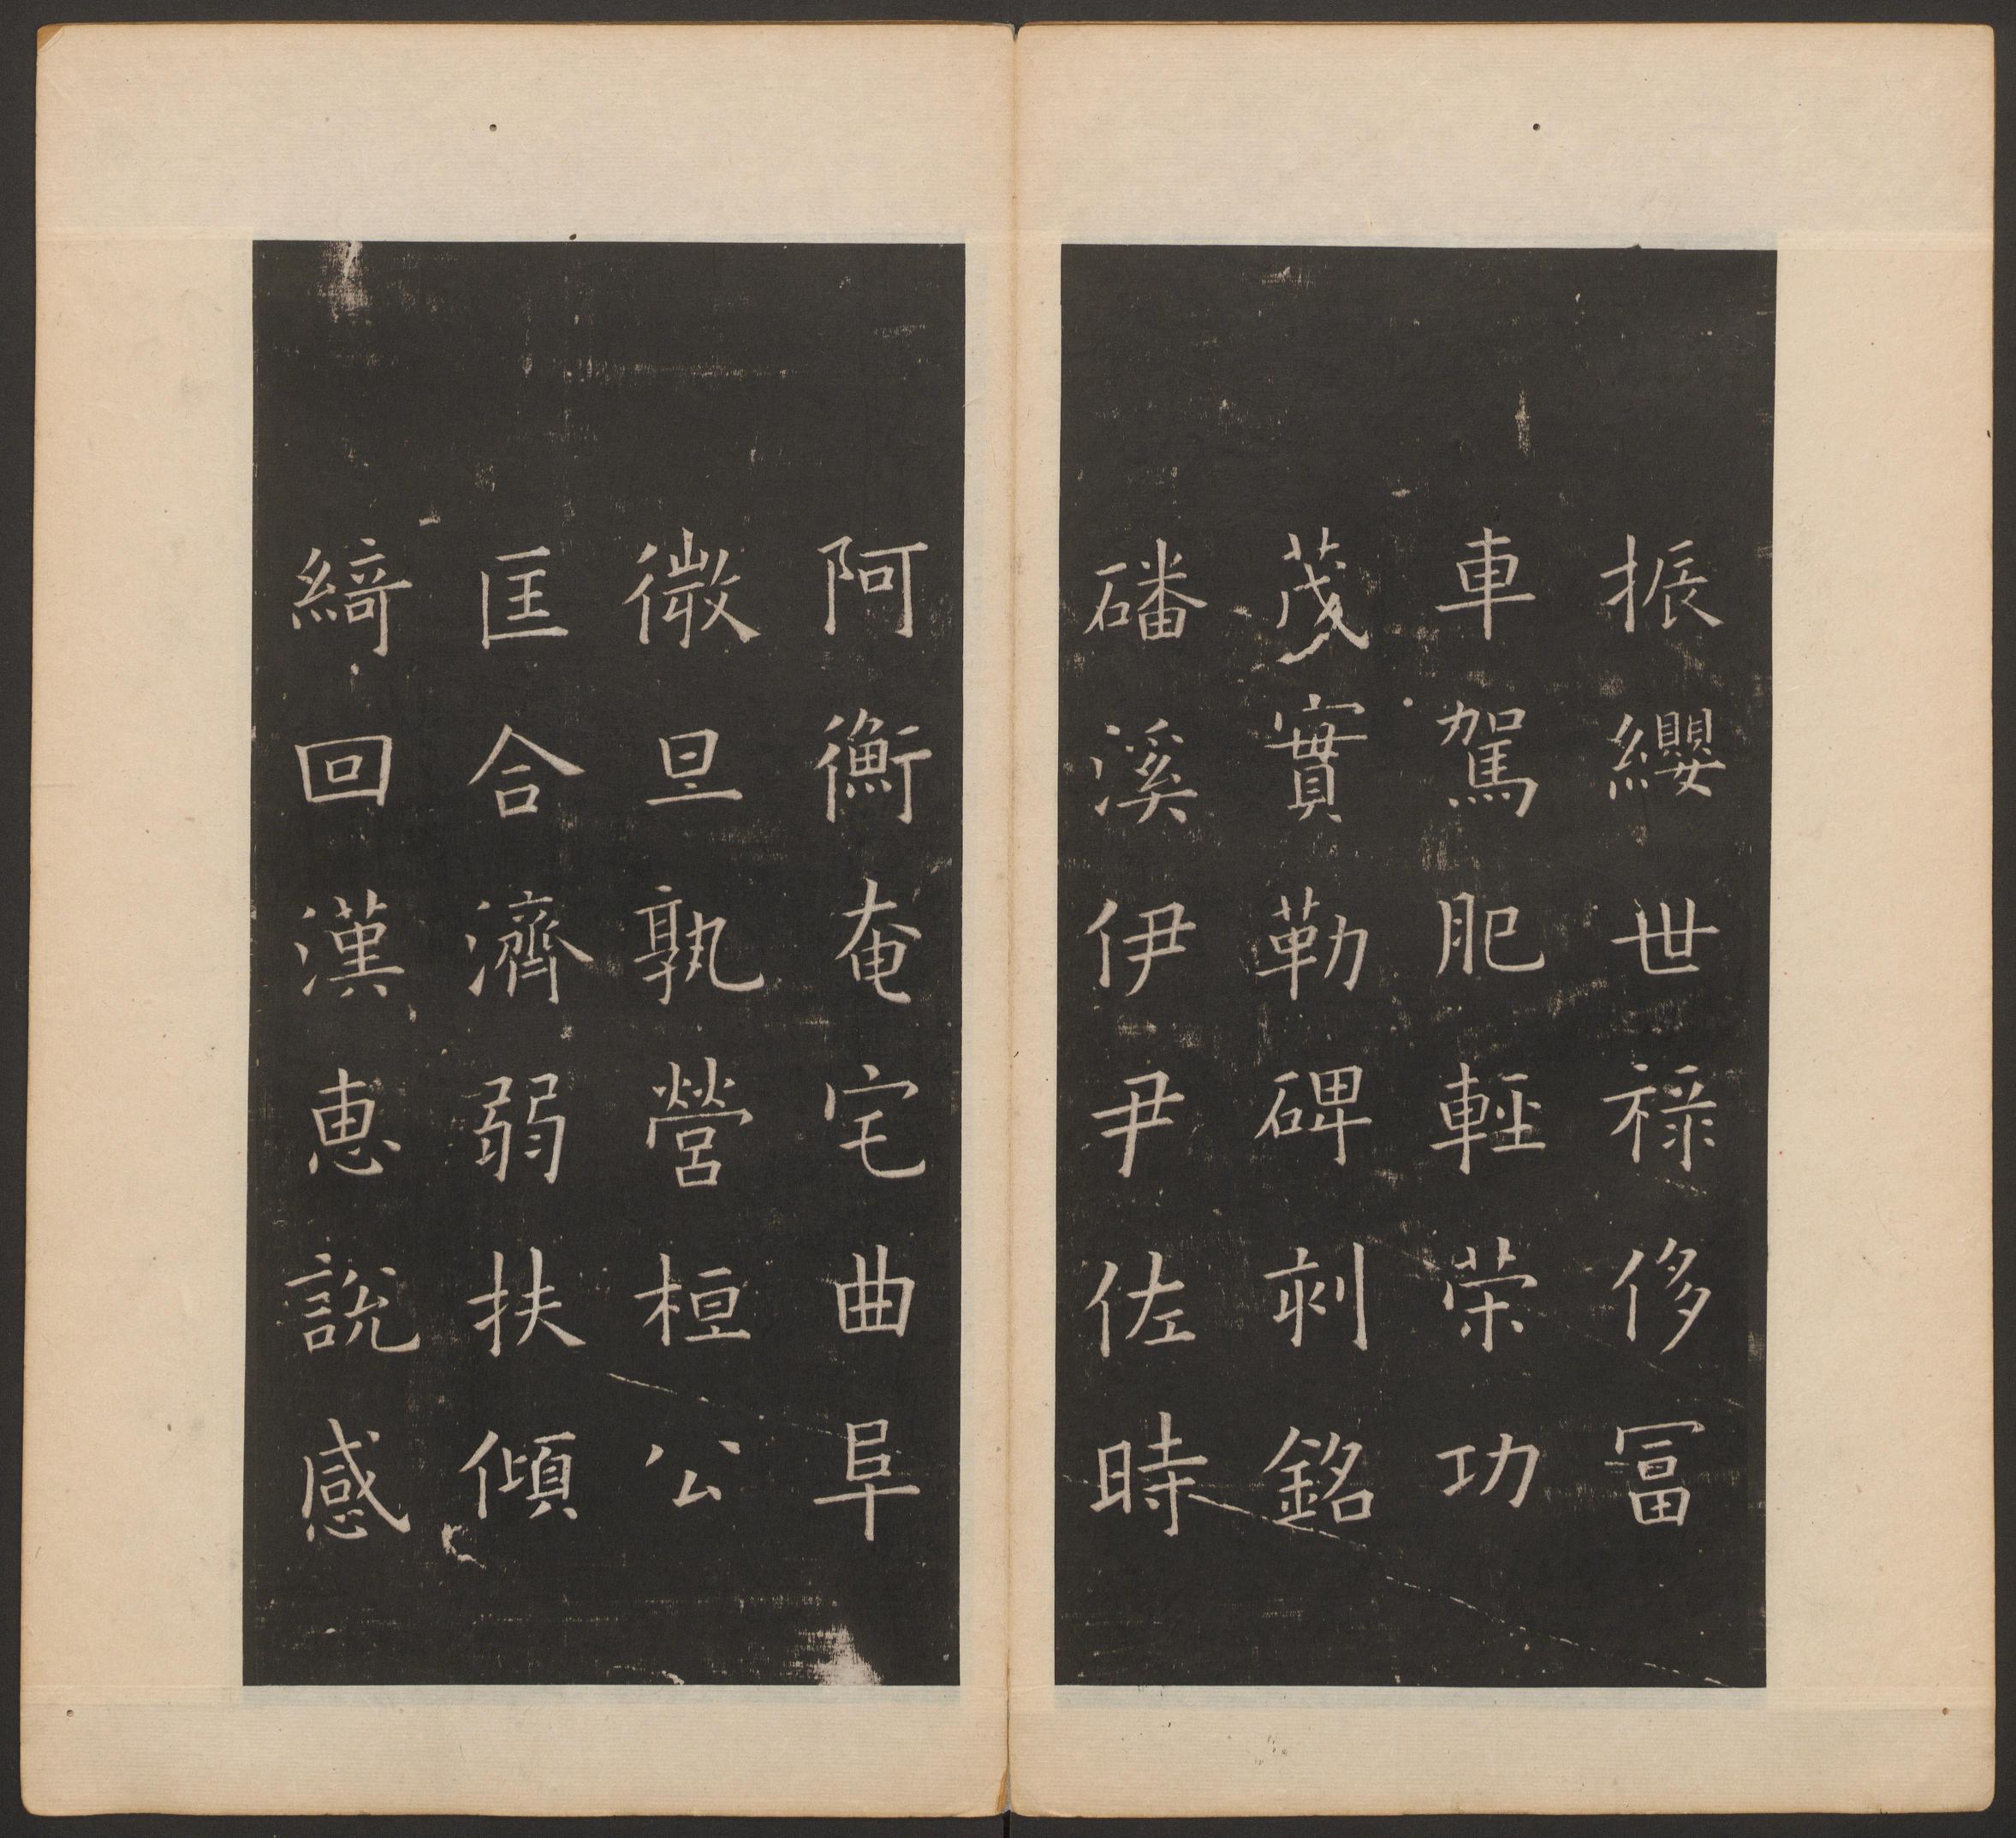 振纓世禄侈冨
車駕肥輕荣功
茂實勒碑刻銘
磻溪伊尹佐時
阿衡奄宅曲阜
微旦孰營桓公
匡合濟弱扶傾
綺回漢惠說感